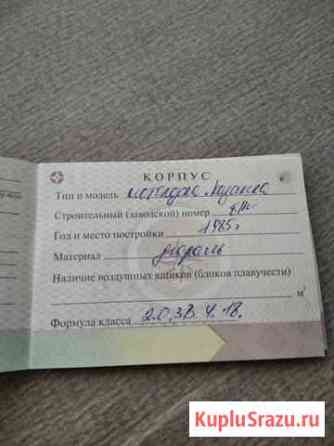 КОРПУС
Тип и модель мотолодка Казанка
Строительный (заводской) номер б/н
Год и место постройки 1985г
Материал дюраль
Наличие воздушных ящиков (блоков плавучести)
м³
Формула класса 2.0,3В.4.18.
KupluSrazu.ru